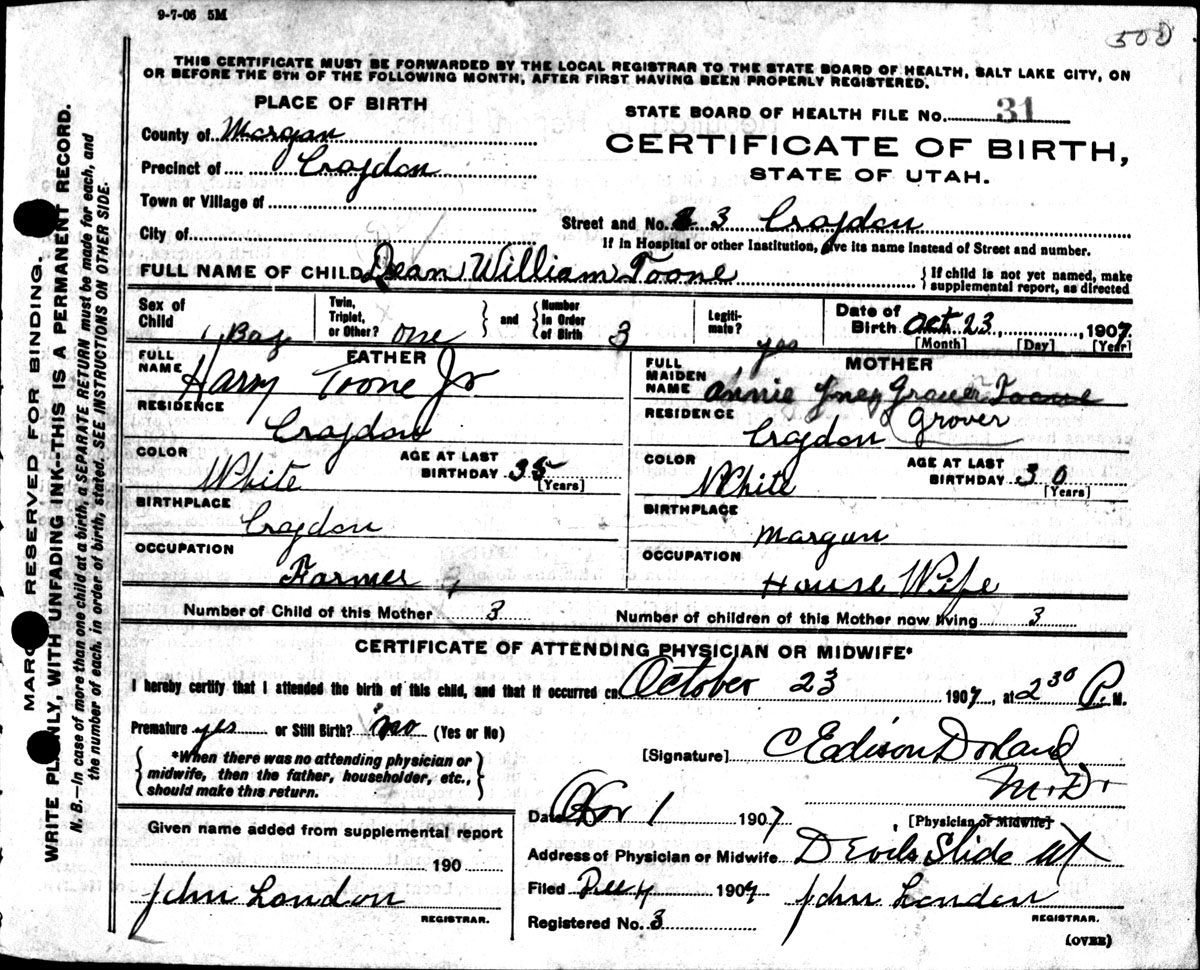 9-7-06 5M
500
THIS CERTIFICATE MUST BE FORWARDED BY THE LOCAL REGISTRAR TO THE STATE BOARD OF HEALTH, SALT LAKE CITY, ON
OR BEFORE THE 5TH OF THE FOLLOWING MONTH, AFTER FIRST HAVING BEEN PROPERLY REGISTERED.
PLACE OF BIRTH
STATE BOARD OF HEALTH FILE No. 31
County of Morgan
CERTIFICATE OF BIRTH,
Precinct of Croydon
STATE OF UTAH.
Town or Village of
Street and No. 3 Croydon
City of
If in Hospital or other Institution, give its name instead of Street and number.
FULL NAME OF CHILD Dean William Toone
If child is not yet named, make
supplemental report, as directed
Sex of Child Boy
Twin, Triplet, or Other? one
and
Number in Order of Birth 3
Legiti-mate? yes
Date of Birth Oct. 23, 1907
[Month] [Day] [Year]
FATHER
FULL NAME Harry Toone Jr
RESIDENCE
Croydon
COLOR White
AGE AT LAST BIRTHDAY 35
[Years]
BIRTHPLACE
Croydon
OCCUPATION
Farmer
MOTHER
FULL MAIDEN NAME Annie Grover Toone
RESIDENCE
Croydon Grover
COLOR White
AGE AT LAST BIRTHDAY 30
[Years]
BIRTHPLACE
Morgan
OCCUPATION
House Wife
Number of Child of this Mother 3
Number of children of this Mother now living 3
CERTIFICATE OF ATTENDING PHYSICIAN OR MIDWIFE*
I hereby certify that I attended the birth of this child, and that it occurred on October 23 1907, at 2 30 P. M.
Premature yes or Still Birth? no (Yes or No)
*When there was no attending physician or
midwife, then the father, householder, etc.,
should make this return.
[Signature] Edison Doland
M.D.
[Physician or Midwife]
Date Nov 1 1907
Address of Physician or Midwife Devils Slide Ut
Given name added from supplemental report
190
John London
REGISTRAR.
Filed Dec 4 1907
John London
REGISTRAR.
Registered No. 3
(OVER)
MARGIN RESERVED FOR BINDING.
WRITE PLAINLY, WITH UNFADING INK--THIS IS A PERMANENT RECORD.
N. B.—In case of more than one child at a birth, a SEPARATE RETURN must be made for each, and
the number of each, in order of birth, stated. SEE INSTRUCTIONS ON OTHER SIDE.